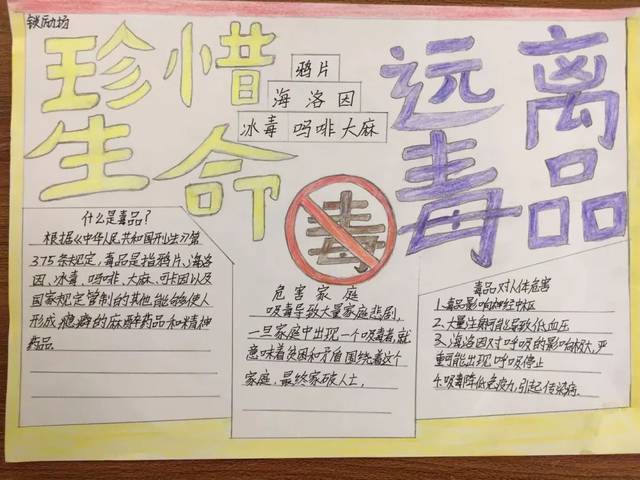 珍惜
生命
鸦片
海洛因
冰毒 吗啡 大麻
远离
毒品
毒
什么是毒品?
根据《中华人民共和国刑法》第
375条规定,毒品是指鸦片、海洛
因、冰毒、吗啡、大麻、可卡因以及
国家规定管制的其他能够使人
形成瘾癖的麻醉药品和精神
药品。
危害家庭
吸毒导致大量家庭悲剧,
一旦家庭中出现一个吸毒者,就
意味着贫困和矛盾围绕着这个
家庭,最终家破人亡,
毒品对人体危害
1.毒品影响神经中枢
2、大量注射可能导致低血压
3、海洛因对呼吸的影响极大,严
重可能出现呼吸停止
4.吸毒降低免疫力,引起传染病.